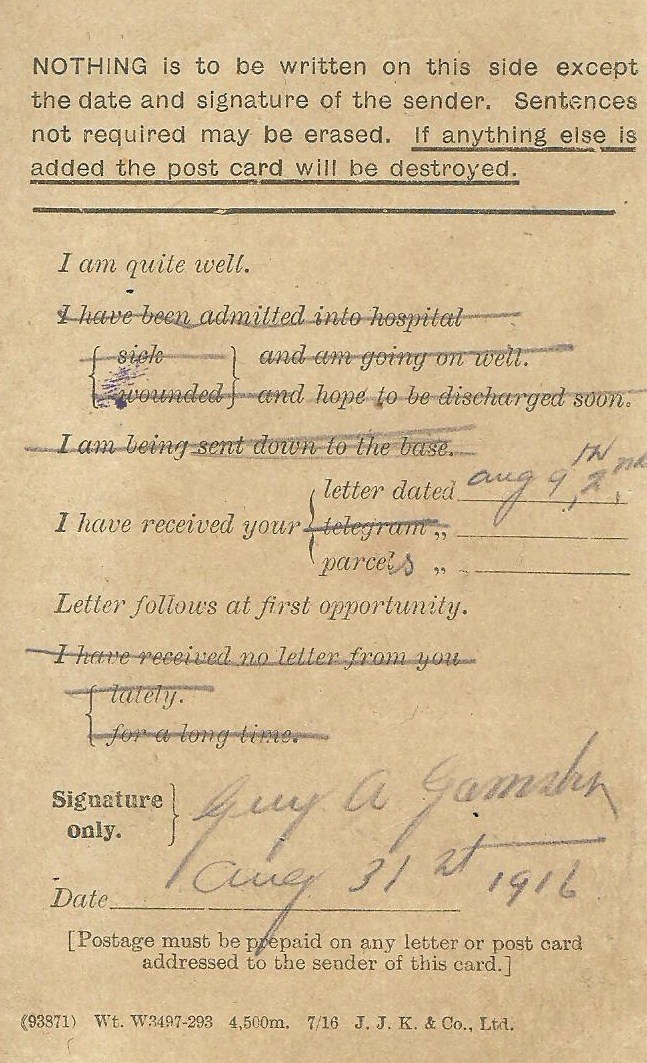 NOTHING is to be written on this side except
the date and signature of the sender. Sentences
not required may be erased. If anything else is
added the post card will be destroyed.
I am quite well.
I have been admitted into hospital
{ sick } and am going on well.
{ wounded } and hope to be discharged soon.
I am being sent down to the base.
letter dated aug 9th, 2nd
I have received your { telegram „
parcels „
Letter follows at first opportunity.
I have received no letter from you
{ lately.
for a long time.
Signature
only. } Guy A
Date aug 31st 1916
[Postage must be prepaid on any letter or post card
addressed to the sender of this card.]
(93871) Wt. W3497-293 4,500m. 7/16 J. J. K. & Co., Ltd.